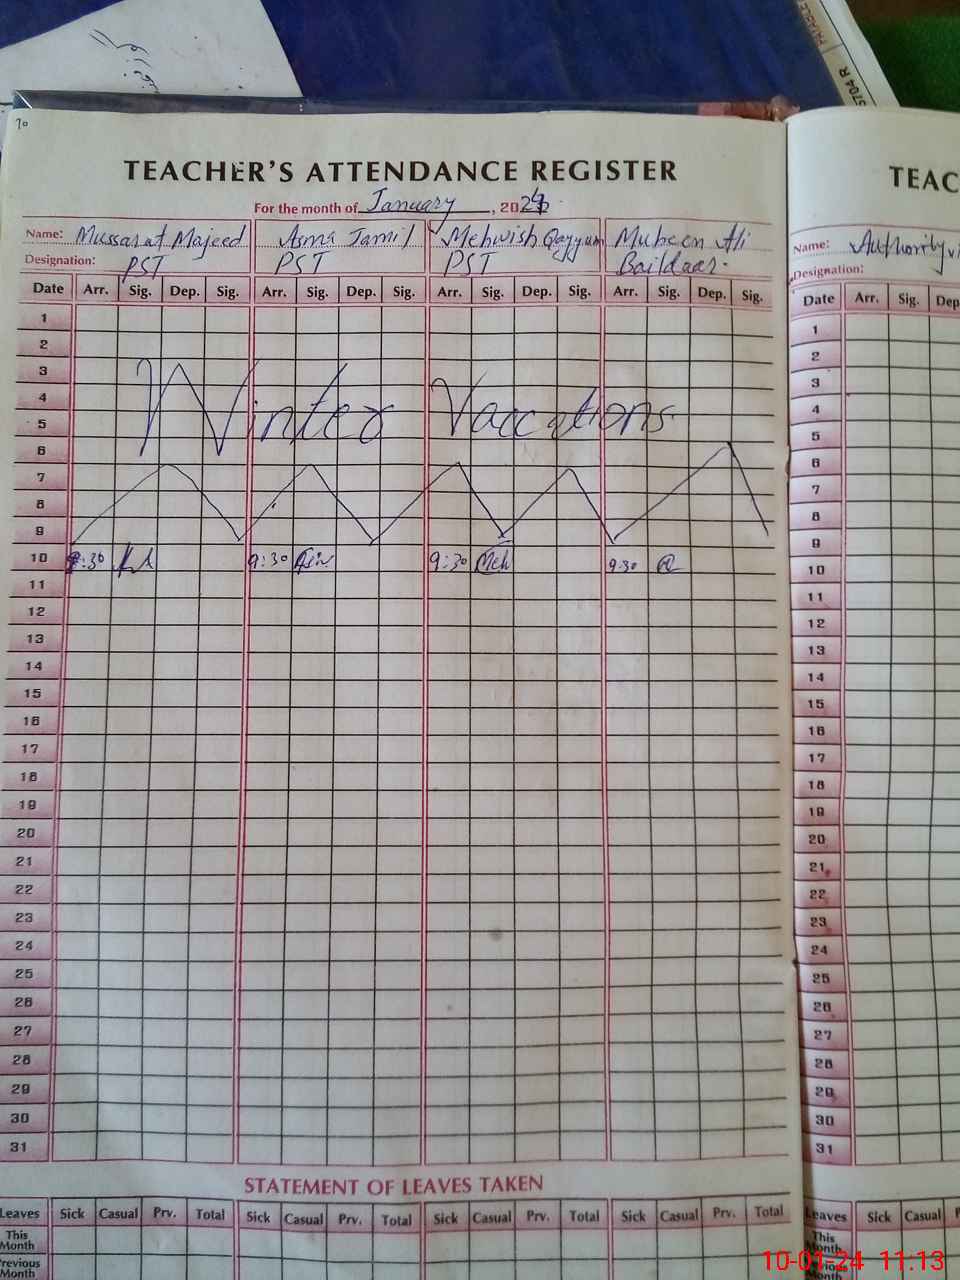 PAYABLE
5704 R
TEACHER'S ATTENDANCE REGISTER
For the month of January, 2024
Name: Mussarat Majeed Asma Jamil Mehwish Qayyum Mubeen Ali
Designation: PST PST PST Baildaar.
Date Arr. Sig. Dep. Sig. Arr. Sig. Dep. Sig. Arr. Sig. Dep. Sig. Arr. Sig. Dep. Sig.
1
2
3
4
5
Winter Vaccations
6
7
8
9
10 9:30 9:30 9:30 Meh 9:30
11
12
13
14
15
16
17
18
19
20
21
22
23
24
25
26
27
28
29
30
31
STATEMENT OF LEAVES TAKEN
Leaves Sick Casual Prv. Total Sick Casual Prv. Total Sick Casual Prv. Total Sick Casual Prv. Total
This Month
Previous Month
TEAC
Name: Authority vi
Designation:
Date Arr. Sig. Dep
1
2
3
4
5
6
7
8
9
10
11
12
13
14
15
16
17
18
19
20
21
22
23
24
25
26
27
28
29
30
31
Leaves Sick Casual P
This Month
10-01-24 11:13